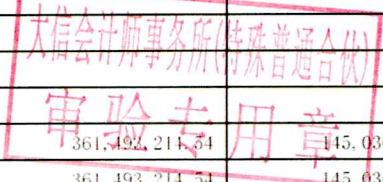 大信会计师事务所(特殊普通合伙)
审验专用章
361,492,214.54 145,03
361,492,214.54 145,03